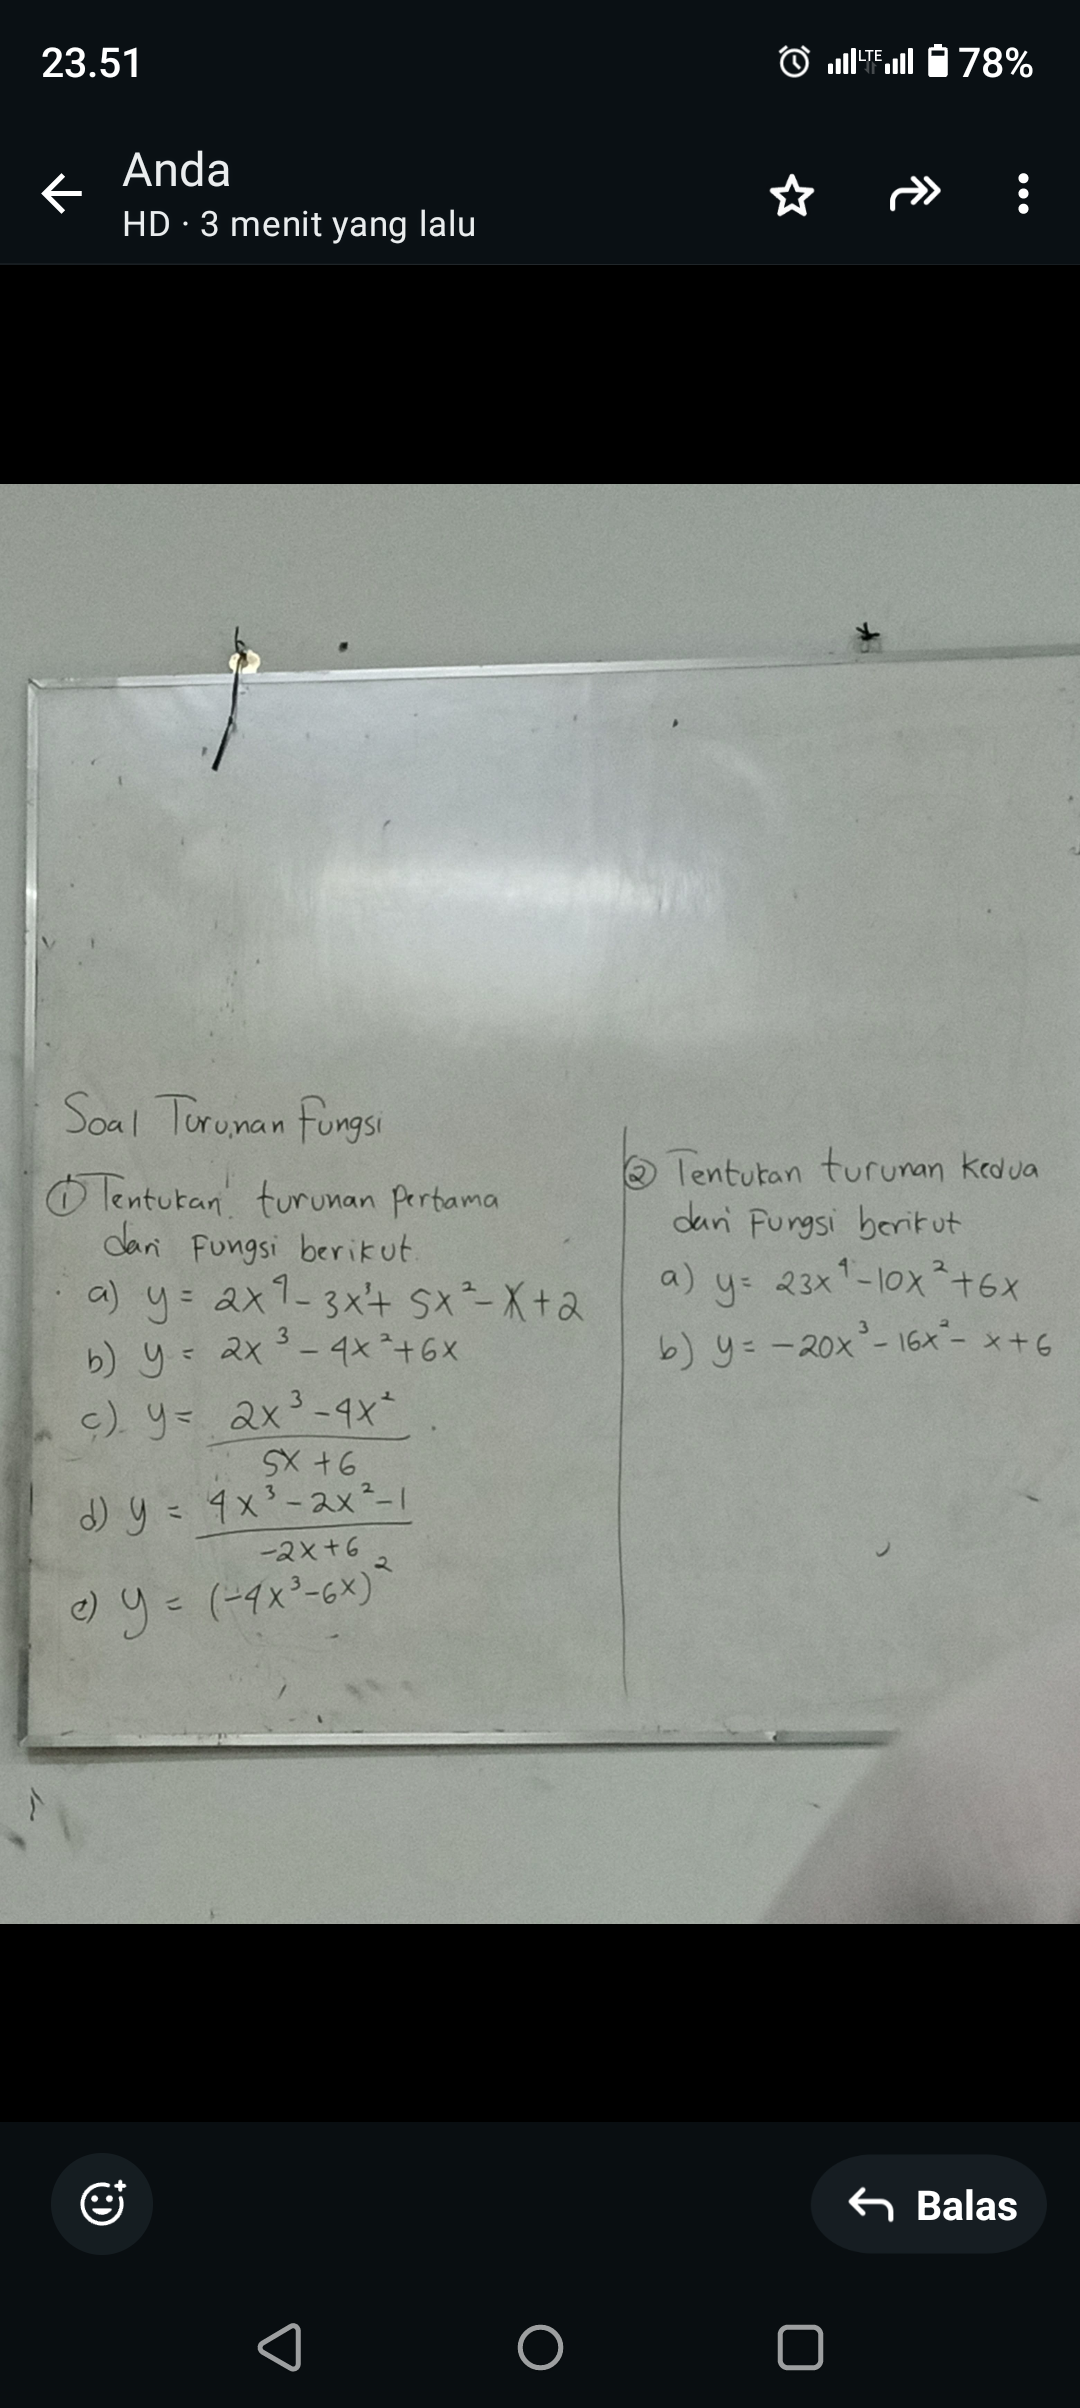 23.51
LTE
78%
Anda
HD · 3 menit yang lalu
Soal Turunan Fungsi
① Tentukan turunan Pertama
dari Fungsi berikut.
a) y = 2x⁴ - 3x³ + 5x² - x + 2
b) y = 2x³ - 4x² + 6x
c) y = 2x³ - 4x²
5x + 6
d) y = 4x³ - 2x² - 1
-2x + 6
e) y = (-4x³ - 6x)²
② Tentukan turunan Kedua
dari Fungsi berikut
a) y = 23x⁴ - 10x² + 6x
b) y = -20x³ - 16x² - x + 6
Balas